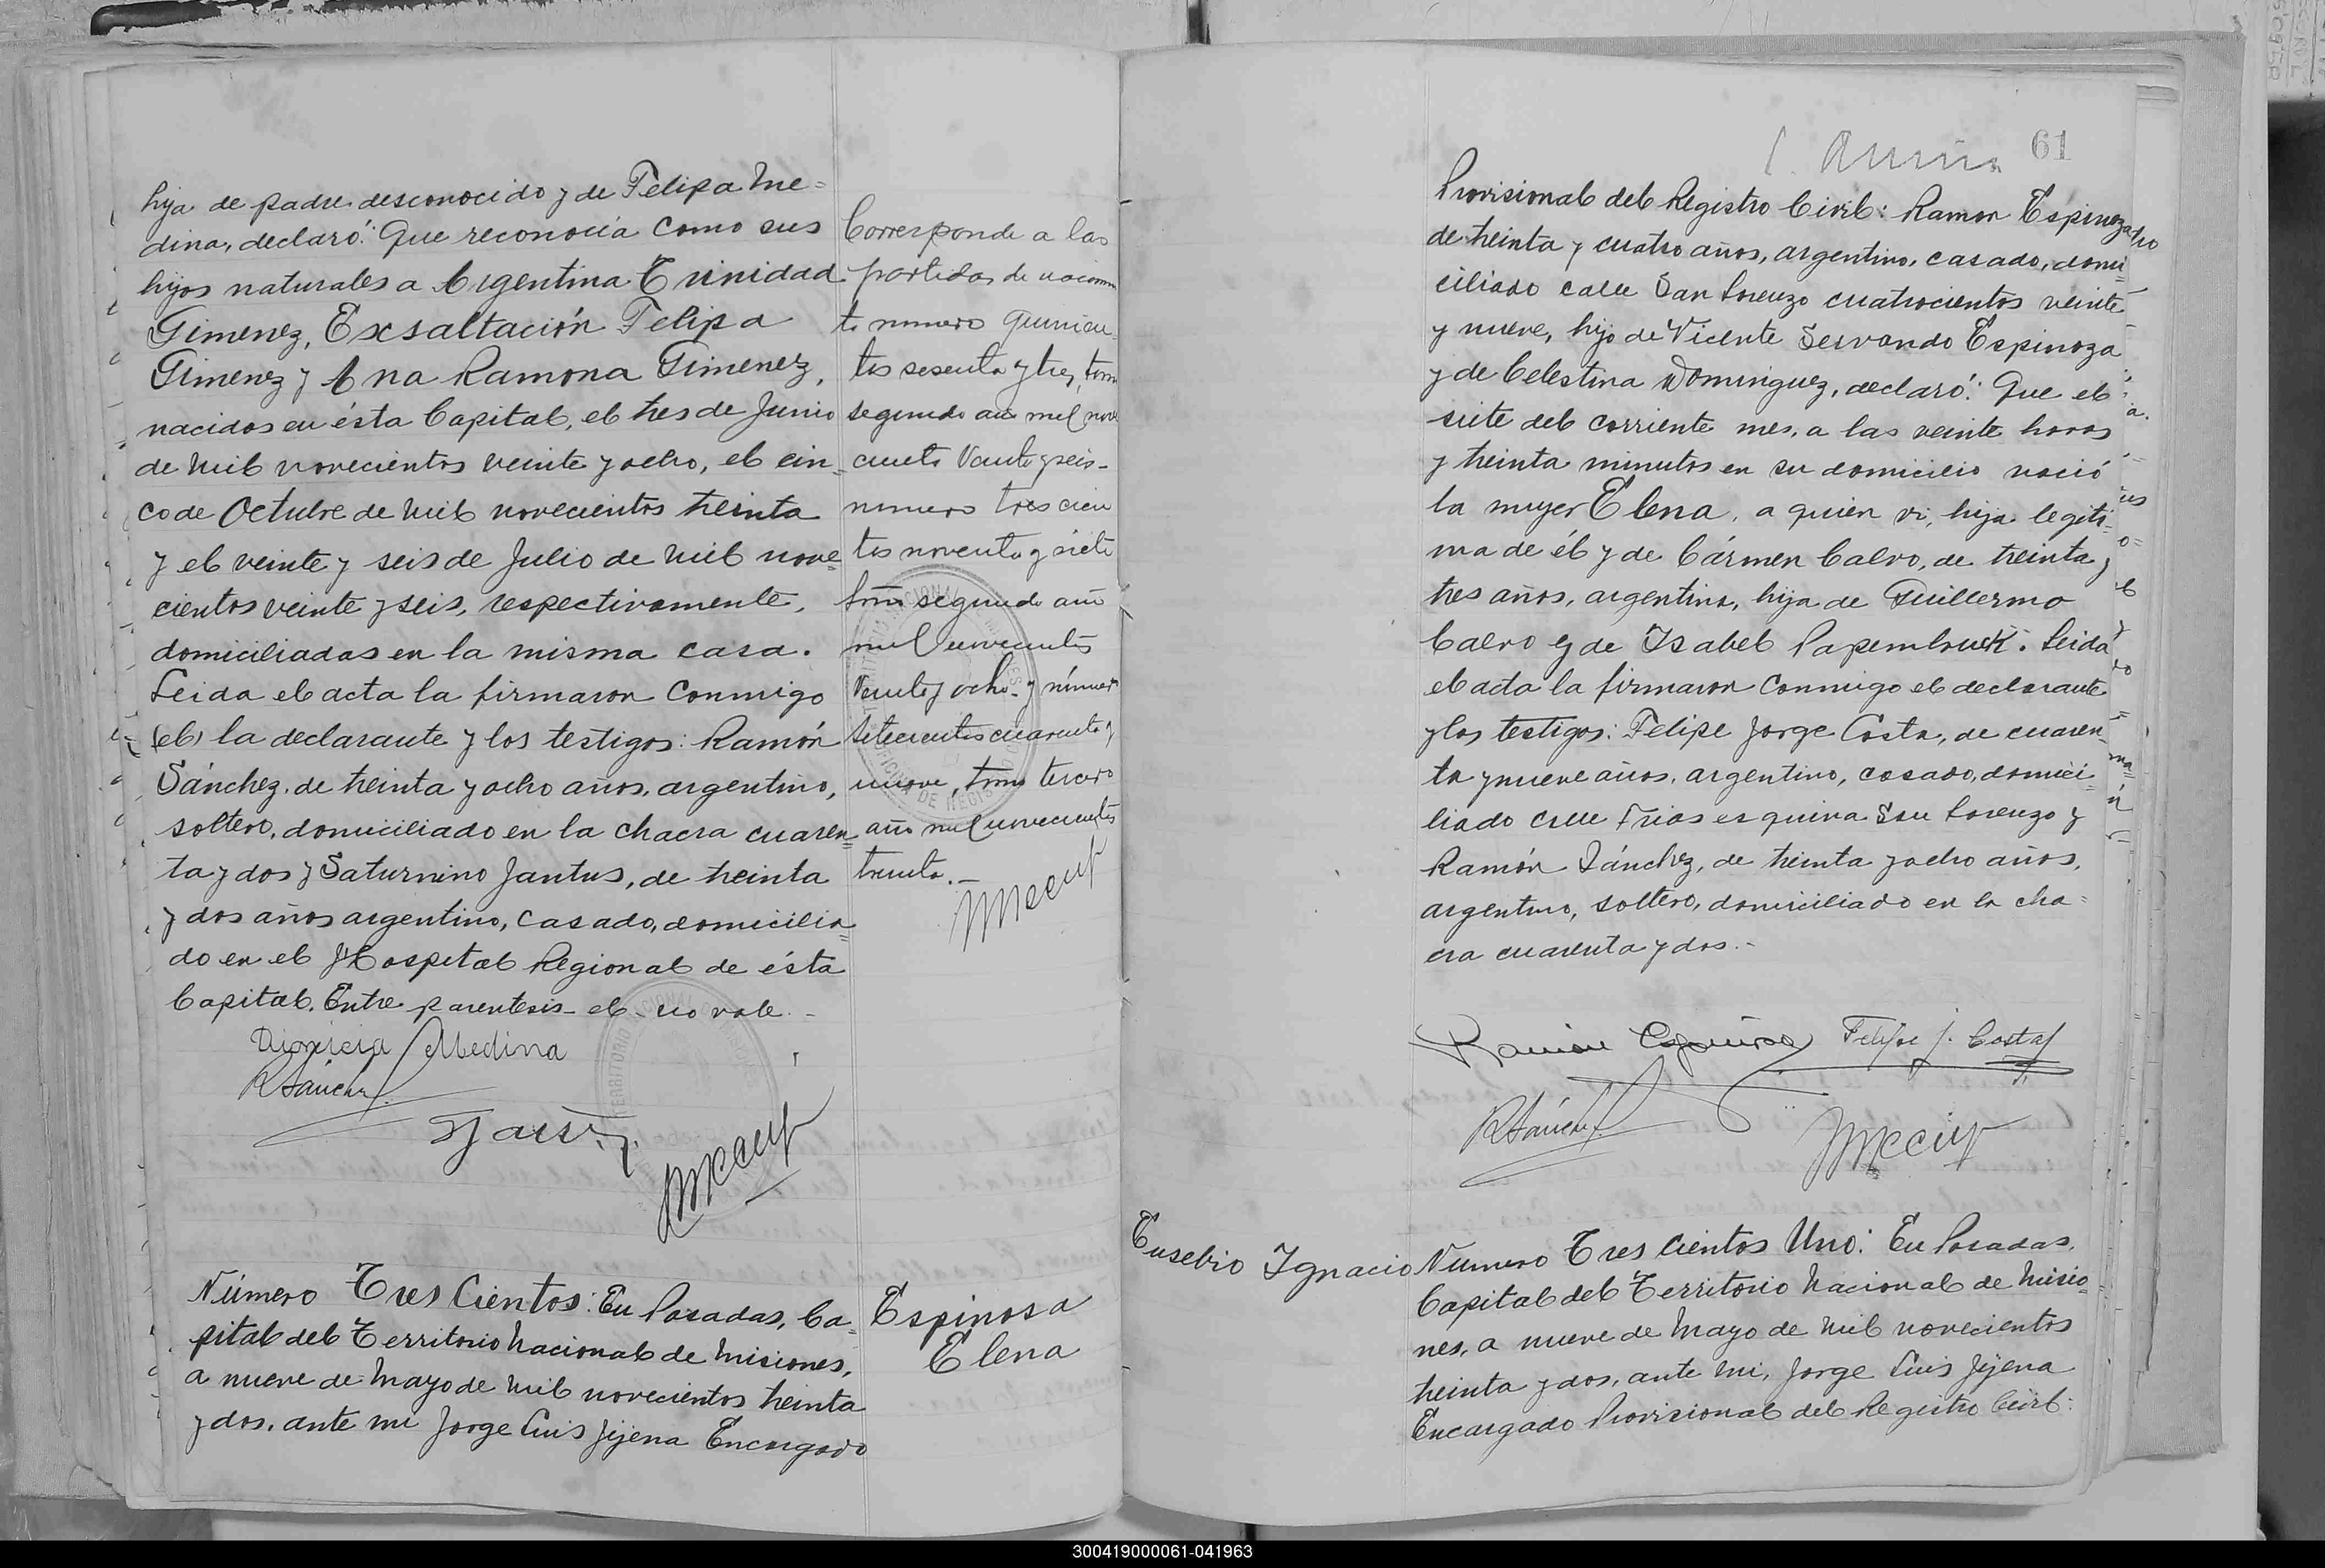 hija de padre desconocido y de Felipa Me=
dina, declaró: Que reconocía como sus
hijos naturales a Argentina Trinidad
Gimenez, Exsaltación Felipa
Gimenez y Ana Ramona Gimenez,
nacidos en ésta Capital, el tres de Junio
de mil novecientos veinte y ocho, el cin=
co de Octubre de mil novecientos treinta
y el veinte y seis de Julio de mil nove=
cientos veinte y seis, respectivamente,
domiciliadas en la misma casa.
Leida el acta la firmaron conmigo
(el) la declarante y los testigos: Ramón
Sánchez, de treinta y ocho años, argentino,
soltero, domiciliado en la chacra cuaren=
ta y dos y Saturnino Jantus, de treinta
y dos años argentino, casado, domicilia=
do en el Hospital Regional de ésta
Capital. Entre parentesis - el - no vale.-
Dionicia Medina
RSánchez
Corresponde a las
partidas de nacimien
to numero quinien
tos sesenta y tres, tomo
segundo año mil nove
ciento veinte y seis-
numero tres cien
tos noventa y siete
tomo segundo año
mil novecientos
veinte y ocho - y número
setecientos cuarenta y
nueve, tomo tercero
año mil novecientos
treinta.-
Número Tres Cientos: En Posadas, Ca=
pital del Territorio Nacional de Misiones,
a nueve de Mayo de mil novecientos treinta
y dos, ante mi Jorge Luis Jijena Encargado
Espinosa
Elena
61
Provisional del Registro Civil: Ramon Espinoza
de treinta y cuatro años, argentino, casado, domi=
ciliado calle San Lorenzo cuatrocientos veinte
y nueve, hijo de Vicente Servando Espinoza
y de Celestina Dominguez, declaró: Que el
siete del corriente mes, a las veinte horas
y treinta minutos en su domicilio nació
la mujer Elena, a quién vi, hija legiti=
ma de él y de Cármen Calvo, de treinta y
tres años, argentina, hija de Guillermo
Calvo y de Isabel Papembruck. Leida
el acta la firmaron conmigo el declarante
y los testigos: Felipe Jorge Costa, de cuaren=
ta y nueve años, argentino, casado, domici=
liado calle Frias esquina San Lorenzo y
Ramón Sánchez, de treinta y ocho años,
argentino, soltero, domiciliado en la cha=
cra cuarenta y dos.-
Ramón Espinosa
Felipe J. Costa
RSánchez
Eusebio Ignacio
Numero Tres Cientos Uno: En Posadas,
Capital del Territorio Nacional de Misio=
nes, a nueve de Mayo de mil novecientos
treinta y dos, ante mi, Jorge Luis Jijena
Encargado Provisional del Registro Civil:
300419000061-041963